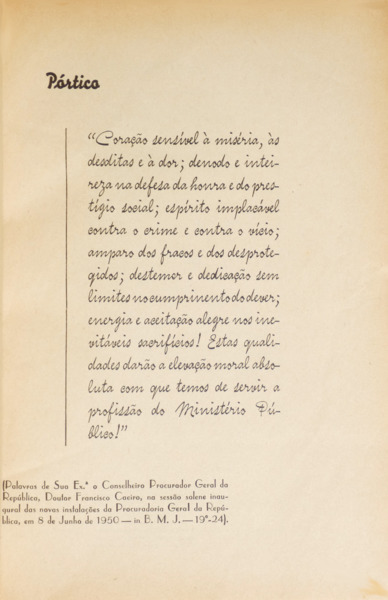 Pórtico
“Coração sensível à miséria, às
desditas e à dor; denodo e intei-
reza na defesa da honra e do pres-
tígio social; espírito implacável
contra o crime e contra o vício;
amparo dos fracos e dos desprote-
gidos; destemor e dedicação sem
limites no cumprimento do dever;
energia e aceitação alegre nos ine-
vitáveis sacrifícios! Estas quali-
dades darão a elevação moral abso-
luta com que temos de servir a
profissão do Ministério Pú-
blico!”
(Palavras de Sua Ex.ª o Conselheiro Procurador Geral da
República, Doutor Francisco Caeiro, na sessão solene inau-
gural das novas instalações da Procuradoria Geral da Repú-
blica, em 8 de Junho de 1950 — in B. M. J. — 19º-24).